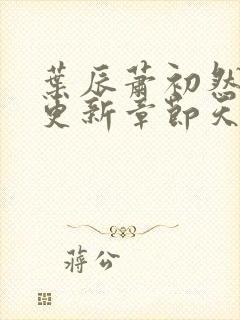 葉辰蕭初然
更新章節天
蔣公